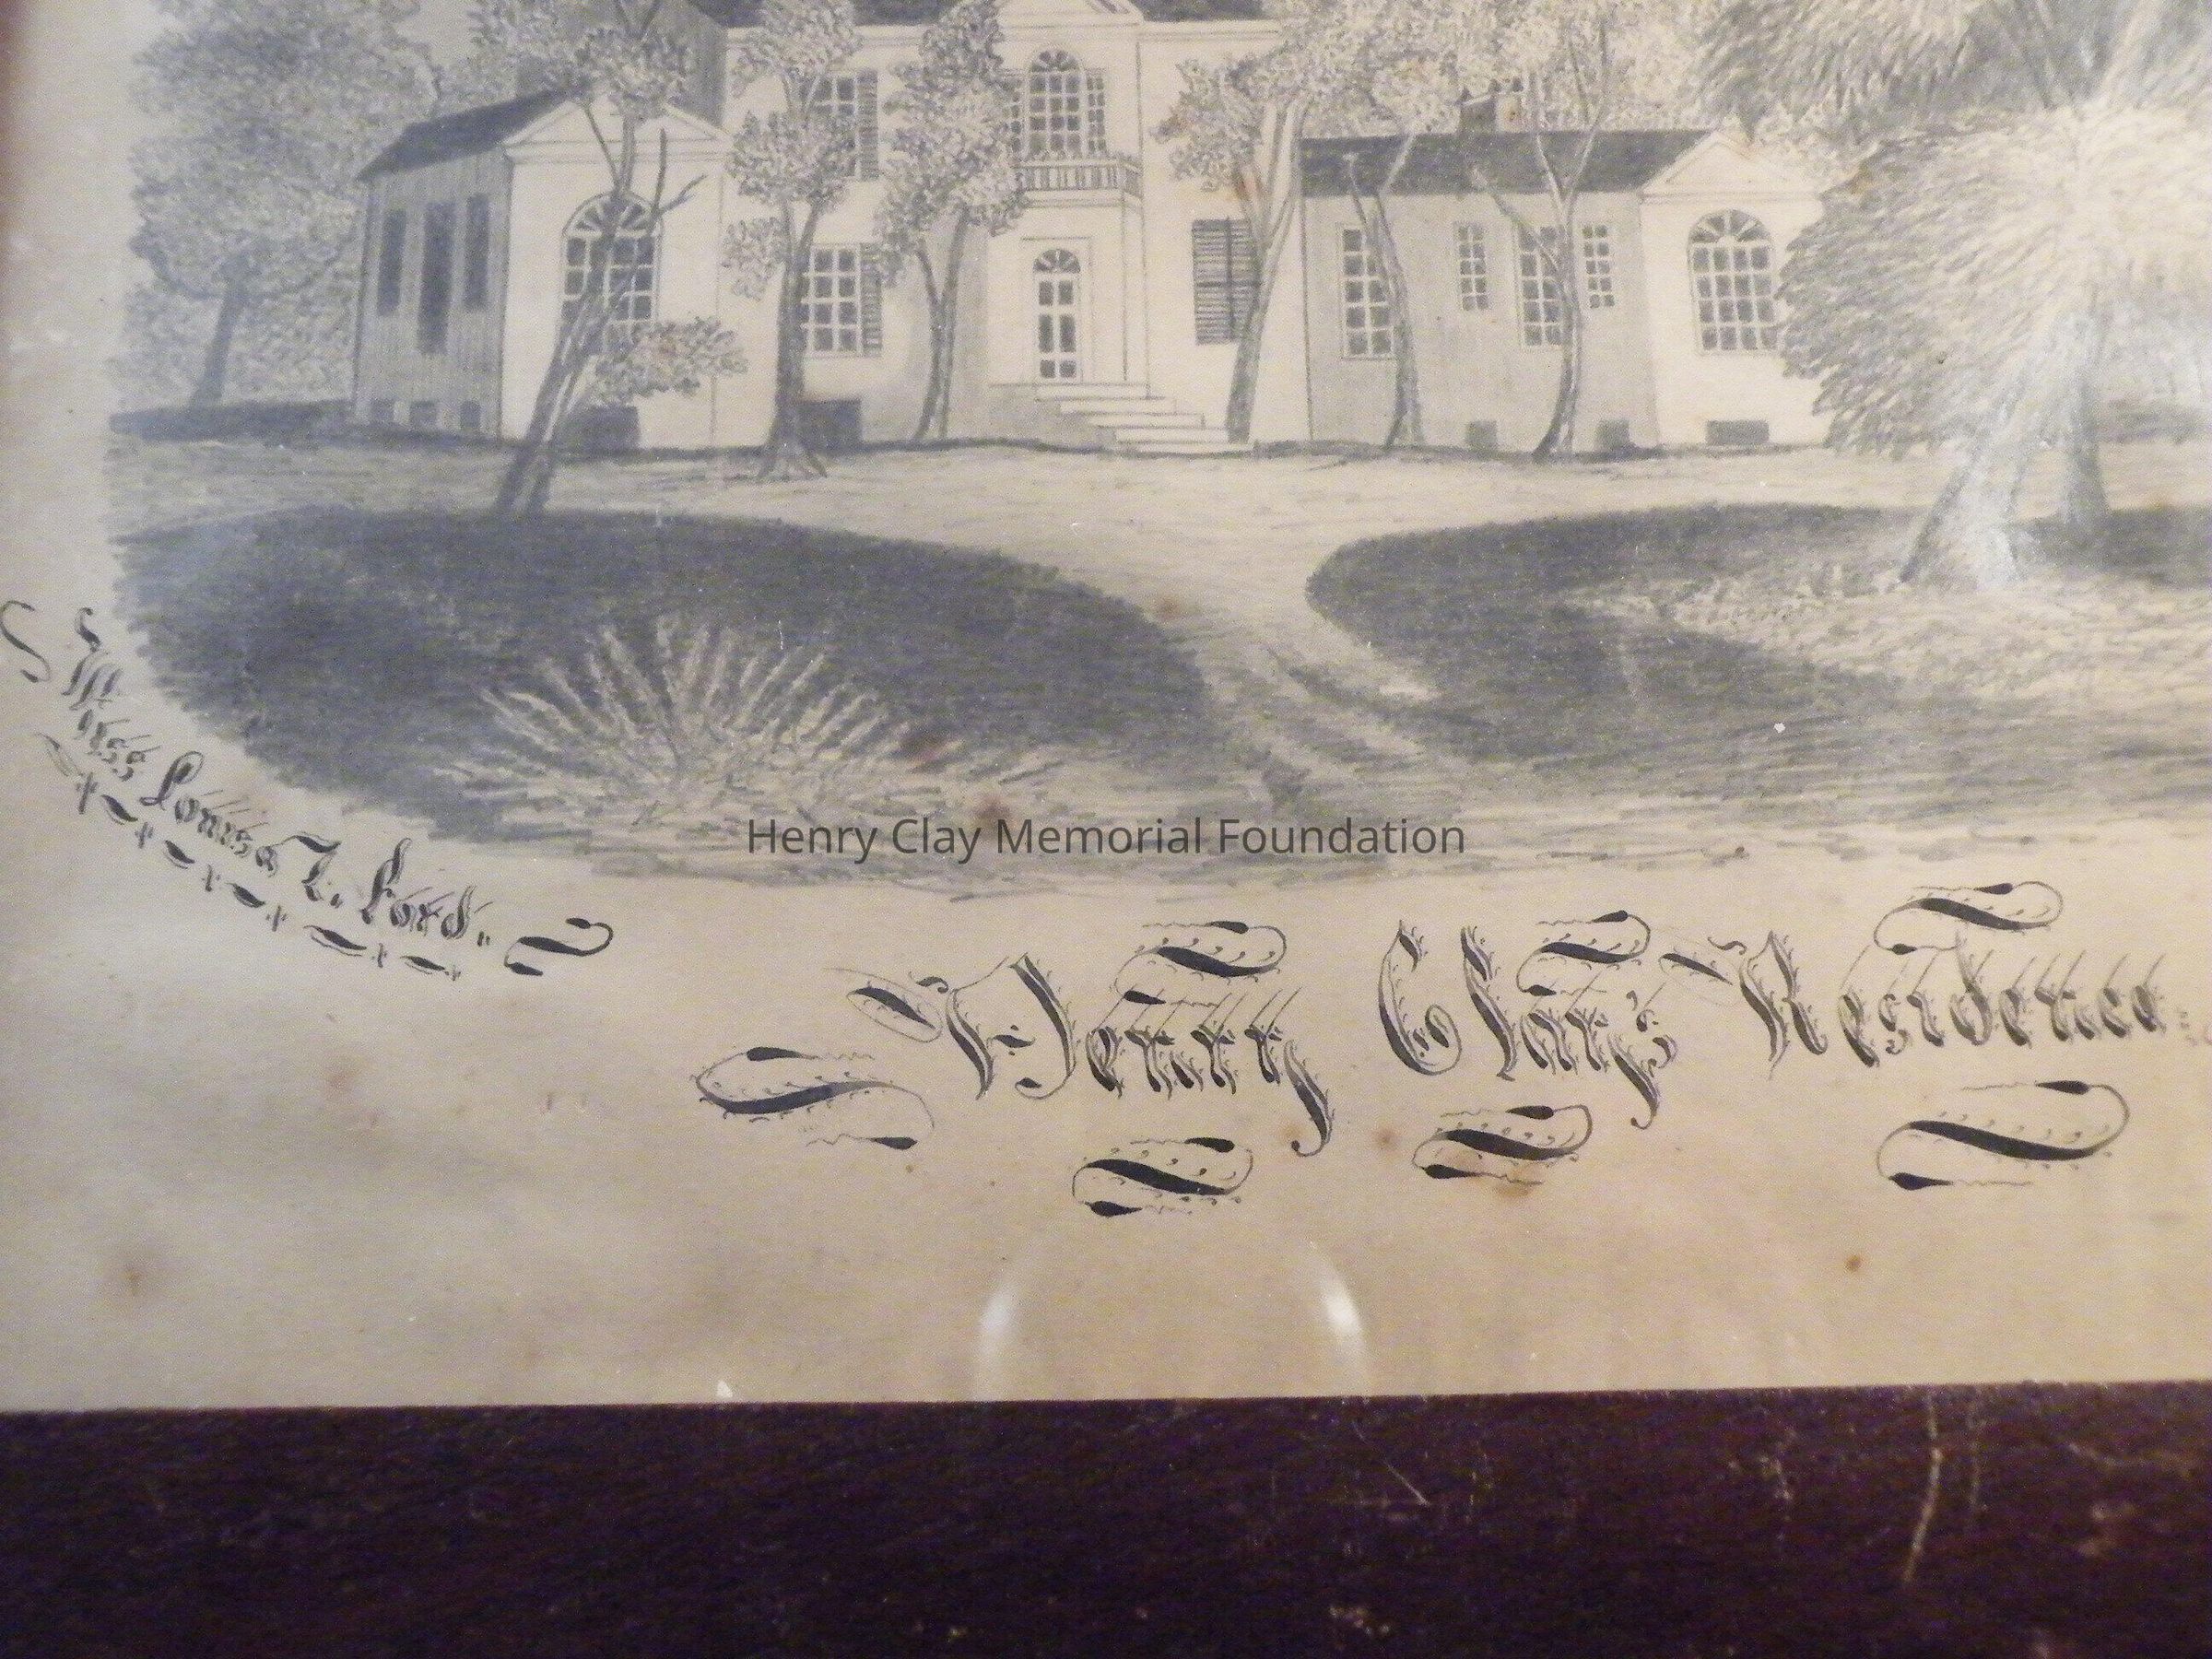 Miss Louisa T. Ford.
Henry Clay Memorial Foundation
Henry Clay's Residence.